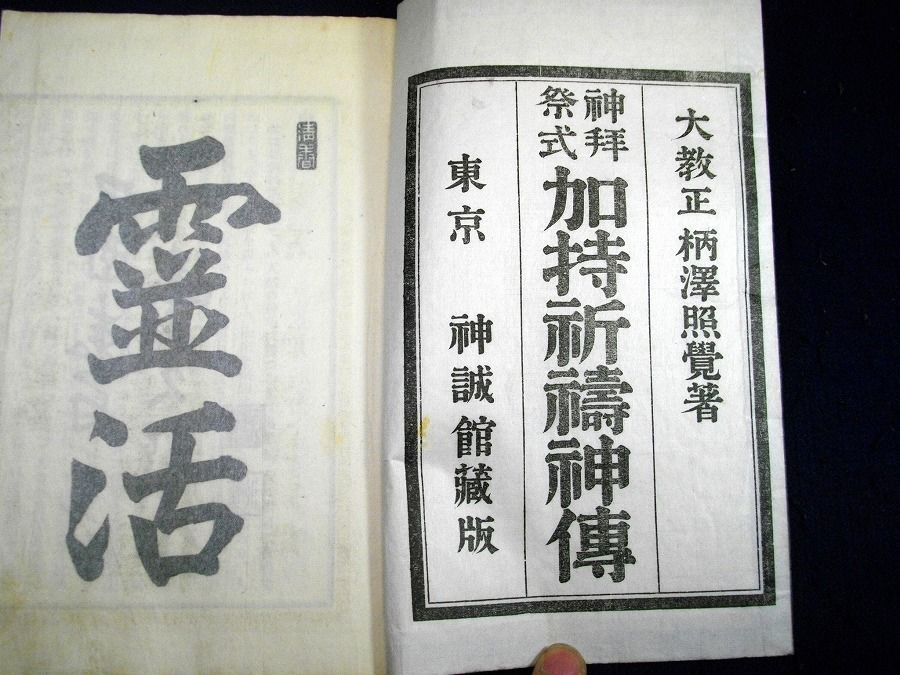 大教正 柄澤照覺著
神拜
祭式
加持祈禱神傳
東京 神誠館藏版
靈活